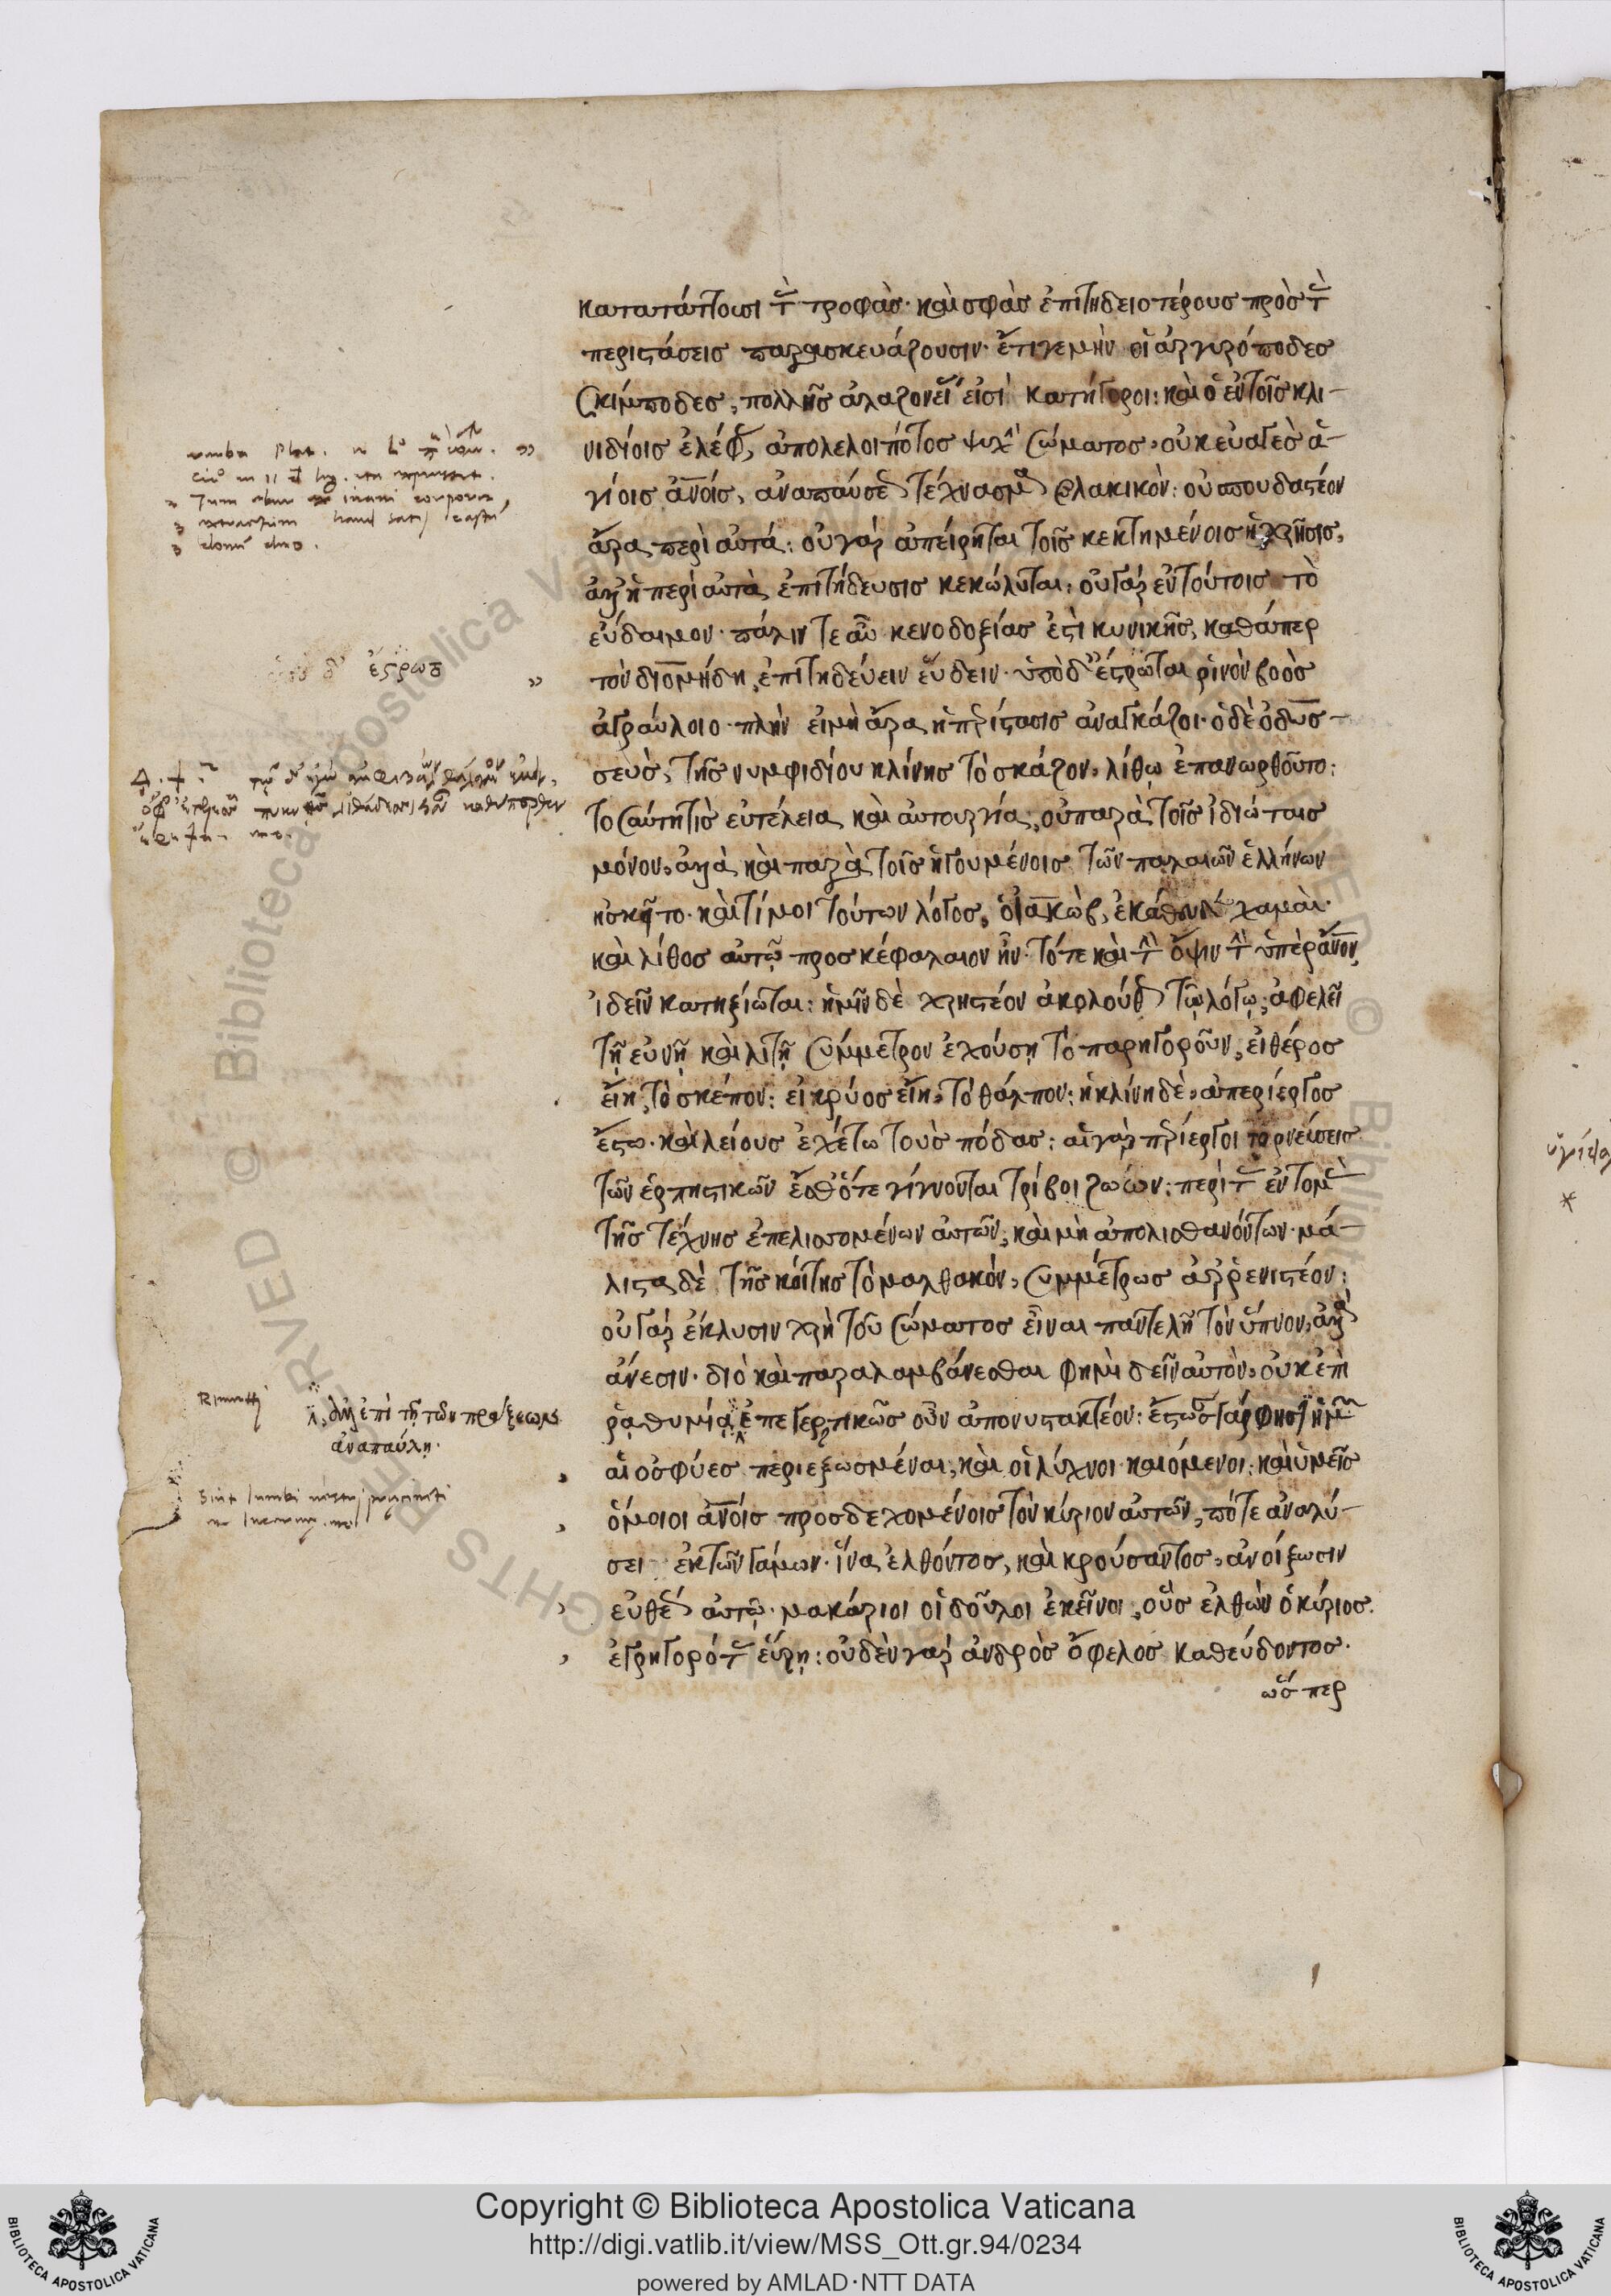 καταπάττωσι τ τροφάς· καὶ σφᾶς ἐπιτηδειοτέρους πρὸς τ
περιστάσεις παρασκευάζουσιν· ἔτι γε μὴν οἱ ἀργυρόποδες
σκίμποδες, πολλῆς ἀλαζονεί εἰσὶ κατήγοροι: καὶ ὁ ἐν τοῖς κλι-
νιδίοις ἐλέφ, ἀπολελοιπότος ψυχ σώματος, οὐκ εὐαγὲς ἁ-
γίοις ἀνοις, ἀναπαύσε τέχνασμ βλακικόν: οὐ σπουδαστέον
ἄρα περὶ αὐτά: οὐ γὰρ ἀπείρηται τοῖς κεκτημένοις ἡ χρῆσις,
ἀλλ ἡ περὶ αὐτὰ ἐπιτήδευσις κεκώλυται: οὐ γὰρ ἐν τούτοις τὸ
εὔδαιμον· πάλιν τε αὖ κενοδοξίας ἐστὶ κυνικῆς, καθάπερ
τὸν διομήδη, ἐπιτηδεύειν εὕδειν· ὑπὸ δ' ἔστρωται ῥινὸν βοὸς
ἀγραύλοιο· πλὴν εἰ μὴ ἄρα ἡ πρίστασις ἀναγκάζοι· ὁ δὲ ὀδυσ-
σεὺς, τῆς νυμφιδίου κλίνης τὸ σκάζον, λίθῳ ἐπανωρθοῦτο:
τοσαύτη τὶς εὐτέλεια καὶ αὐτουργία, οὐ παρὰ τοῖς ἰδιώταις
μόνον, ἀλλὰ καὶ παρὰ τοῖς ἡγουμένοις τῶν παλαιῶν ἑλλήνων
ἠσκῆτο· καὶ τί μοι τούτων λόγος, ὁ ἰακὼβ, ἐκάθευδε χαμαὶ·
καὶ λίθος αὐτῷ προσκέφαλαιον ἦν· τότε καὶ τ ὄψιν τ ὑπὲρ ἄνον,
ἰδεῖν κατηξίωται: ἡμῖν δὲ χρηστέον ἀκολούθ τῷ λόγῳ, ἀφελεῖ
τῇ εὐνῇ καὶ λιτῇ σύμμετρον ἐχούσῃ τὸ παρηγοροῦν, εἰ θέρος
εἴη, τὸ σκέπον: εἰ κρύος εἴη, τὸ θάλπον: ἡ κλίνη δὲ, ἀπερίεργος
ἔστω· καὶ λείους ἐχέτω τοὺς πόδας: αἱ γὰρ πρίεργοι τορνεύσεις
τῶν ἑρπηστικῶν ἔσθ' ὅτε γίγνονται τρίβοι ζῴων: περὶ τ ἐντομ
τῆς τέχνης ἐπελισσομένων αὐτῶν, καὶ μὴ ἀπολισθανόντων· μά-
λιστα δὲ τῆς κοίτης τὸ μαλθακὸν, συμμέτρως ἀρρενιστέον:
οὐ γὰρ ἔκλυσιν χρὴ τοῦ σώματος εἶναι παντελῆ τὸν ὕπνον, ἀλλ
ἄνεσιν· διὸ καὶ παραλαμβάνεσθαι φημὶ δεῖν αὐτὸν, οὐκ ἐπὶ
ῥᾳθυμίᾳ, ἐπεγερτικῶς οὖν ἀπονυστακτέον: ἔστωσ γάρ φησ ἡμ
αἱ ὀσφύες περιεζωσμέναι, καὶ οἱ λύχνοι καιόμενοι: καὶ ὑμεῖς
ὅμοιοι ἀνοις προσδεχομένοις τὸν κύριον αὐτῶν, πότε ἀναλύ-
σει ἐκ τῶν γάμων· ἵνα ἐλθόντος, καὶ κρούσαντος, ἀνοίξωσιν
εὐθέ αὐτῷ· μακάριοι οἱ δοῦλοι ἐκεῖνοι, οὓς ἐλθὼν ὁ κύριος·
ἐγρηγορότ εὕρῃ: οὐδὲν γὰρ ἀνδρὸς ὄφελος καθεύδοντος·
ὥσπερ
ἔστρωτ
λ, ἀλλ ἐπὶ τῇ τῶν πράξεων
ἀναπαύλῃ·
Sint lumbi vestri precincti
Copyright © Biblioteca Apostolica Vaticana
http://digi.vatlib.it/view/MSS_Ott.gr.94/0234
powered by AMLAD·NTT DATA
BIBLIOTECA APOSTOLICA VATICANA
BIBLIOTECA APOSTOLICA VATICANA